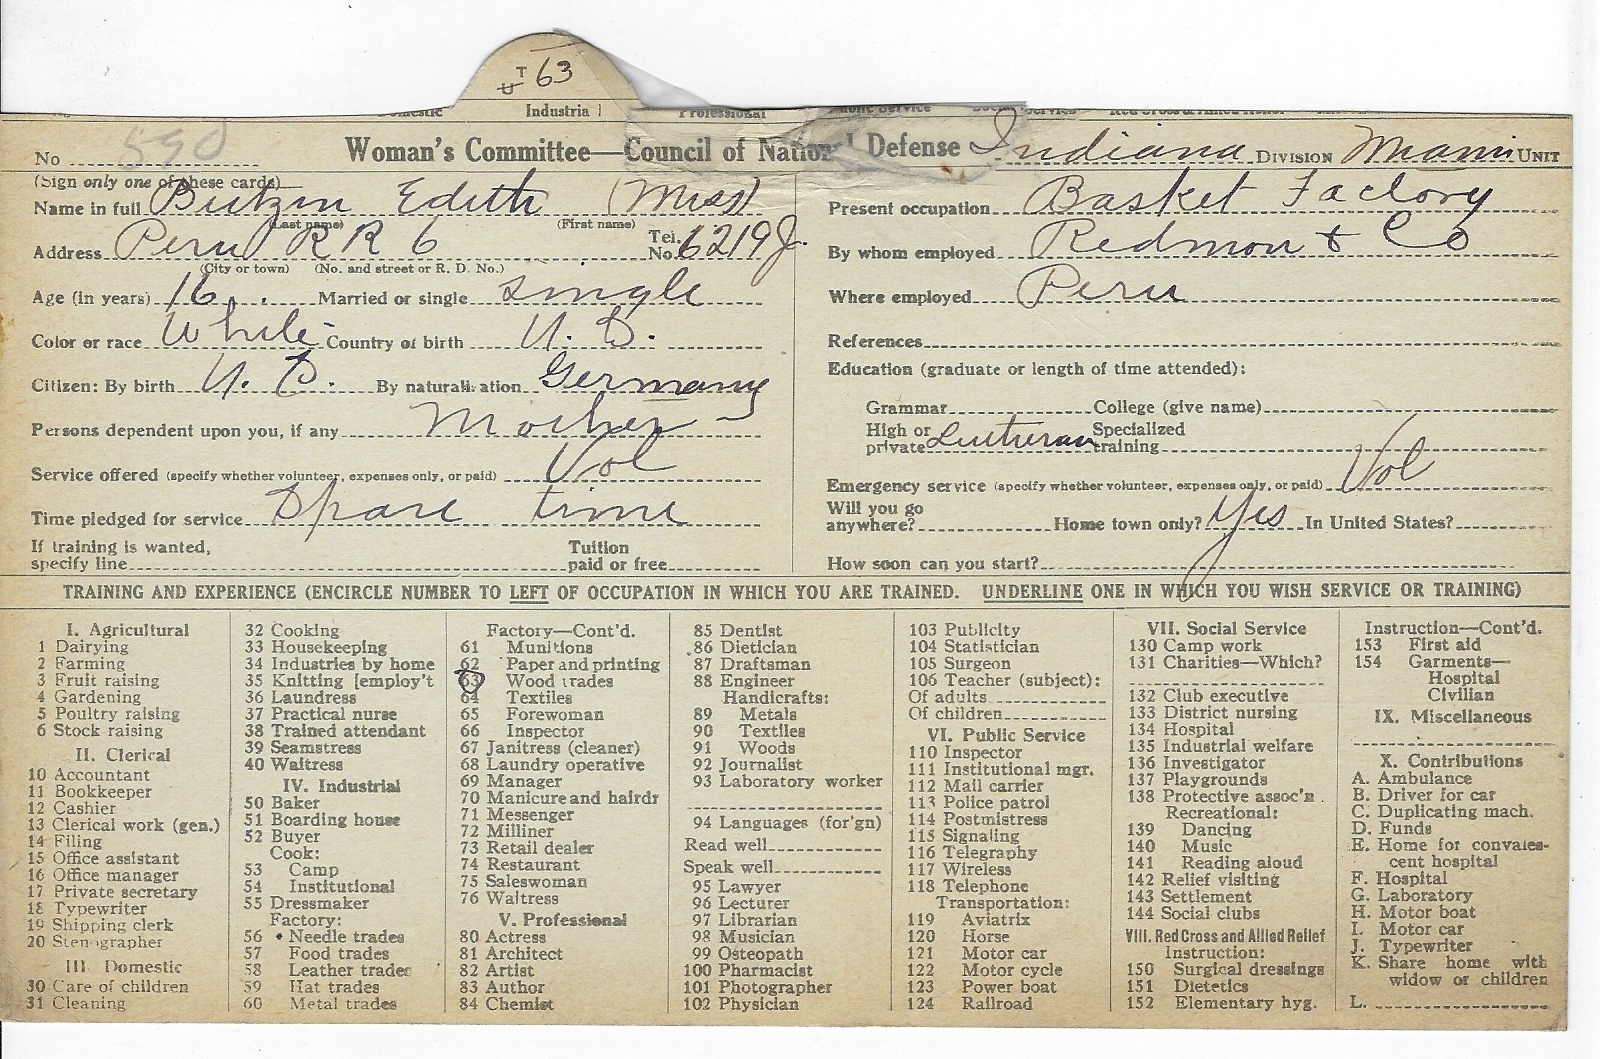 T
U 63
Domestic Industrial Professional Public Service Social Service Red Cross & Allied Relief
No 590 Woman's Committee—Council of National Defense Indiana DIVISION Miami UNIT
(Sign only one of these cards)
Name in full Butzin Edith (Miss)
(Last name) (First name)
Address Peru R R 6 Tel. No. 6219 J.
(City or town) (No. and street or R. D. No.)
Age (in years) 16 Married or single single
Color or race White Country of birth U. S.
Citizen: By birth U. S. By naturalization Germany
Persons dependent upon you, if any Mother
Service offered (specify whether volunteer, expenses only, or paid) Vol
Time pledged for service Spare time
If training is wanted, specify line Tuition paid or free
Present occupation Basket Factory
By whom employed Redmon & Co
Where employed Peru
References
Education (graduate or length of time attended):
Grammar College (give name)
High or private Lutheran Specialized training
Emergency service (specify whether volunteer, expenses only, or paid) Vol
Will you go anywhere? Home town only? Yes In United States?
How soon can you start?
TRAINING AND EXPERIENCE (ENCIRCLE NUMBER TO LEFT OF OCCUPATION IN WHICH YOU ARE TRAINED. UNDERLINE ONE IN WHICH YOU WISH SERVICE OR TRAINING)
I. Agricultural
1 Dairying
2 Farming
3 Fruit raising
4 Gardening
5 Poultry raising
6 Stock raising
II. Clerical
10 Accountant
11 Bookkeeper
12 Cashier
13 Clerical work (gen.)
14 Filing
15 Office assistant
16 Office manager
17 Private secretary
18 Typewriter
19 Shipping clerk
20 Stenographer
III Domestic
30 Care of children
31 Cleaning
32 Cooking
33 Housekeeping
34 Industries by home
35 Knitting [employ't
36 Laundress
37 Practical nurse
38 Trained attendant
39 Seamstress
40 Waitress
IV. Industrial
50 Baker
51 Boarding house
52 Buyer
Cook:
53 Camp
54 Institutional
55 Dressmaker
Factory:
56 Needle trades
57 Food trades
58 Leather trades
59 Hat trades
60 Metal trades
Factory—Cont'd.
61 Munitions
62 Paper and printing
63 Wood trades
64 Textiles
65 Forewoman
66 Inspector
67 Janitress (cleaner)
68 Laundry operative
69 Manager
70 Manicure and hairdr
71 Messenger
72 Milliner
73 Retail dealer
74 Restaurant
75 Saleswoman
76 Waitress
V. Professional
80 Actress
81 Architect
82 Artist
83 Author
84 Chemist
85 Dentist
86 Dietician
87 Draftsman
88 Engineer
Handicrafts:
89 Metals
90 Textiles
91 Woods
92 Journalist
93 Laboratory worker
94 Languages (for'gn)
Read well
Speak well
95 Lawyer
96 Lecturer
97 Librarian
98 Musician
99 Osteopath
100 Pharmacist
101 Photographer
102 Physician
103 Publicity
104 Statistician
105 Surgeon
106 Teacher (subject):
Of adults
Of children
VI. Public Service
110 Inspector
111 Institutional mgr.
112 Mail carrier
113 Police patrol
114 Postmistress
115 Signaling
116 Telegraphy
117 Wireless
118 Telephone
Transportation:
119 Aviatrix
120 Horse
121 Motor car
122 Motor cycle
123 Power boat
124 Railroad
VII. Social Service
130 Camp work
131 Charities—Which?
132 Club executive
133 District nursing
134 Hospital
135 Industrial welfare
136 Investigator
137 Playgrounds
138 Protective assoc'n
Recreational:
139 Dancing
140 Music
141 Reading aloud
142 Relief visiting
143 Settlement
144 Social clubs
VIII. Red Cross and Allied Relief
Instruction:
150 Surgical dressings
151 Dietetics
152 Elementary hyg.
Instruction—Cont'd.
153 First aid
154 Garments—
Hospital
Civilian
IX. Miscellaneous
X. Contributions
A. Ambulance
B. Driver for car
C. Duplicating mach.
D. Funds
E. Home for convales-
cent hospital
F. Hospital
G. Laboratory
H. Motor boat
I. Motor car
J. Typewriter
K. Share home with
widow or children
L.